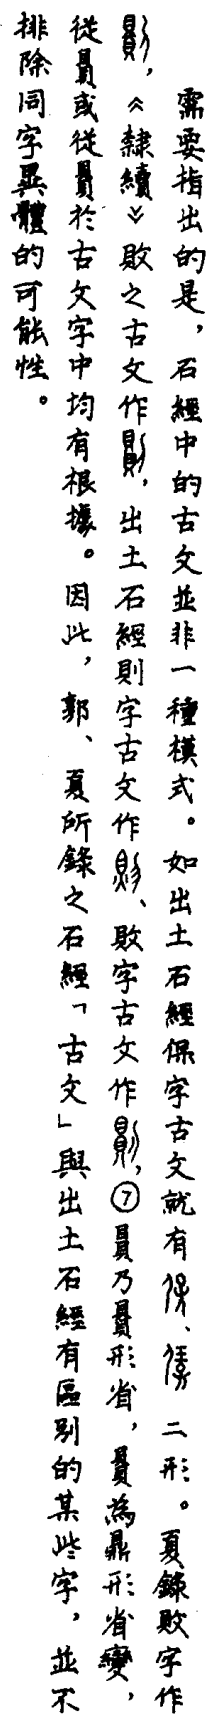 需要指出的是，石經中的古文並非一種模式。如出土石經保字古文就有、二形。夏錄敗字作
，《隸續》敗之古文作，出土石經則字古文作、敗字古文作，⑦鼎乃形省，為鼎形省變，
從或從於古文字中均有根據。因此，郭、夏所錄之石經「古文」與出土石經有區別的某些字，並不
排除同字異體的可能性。